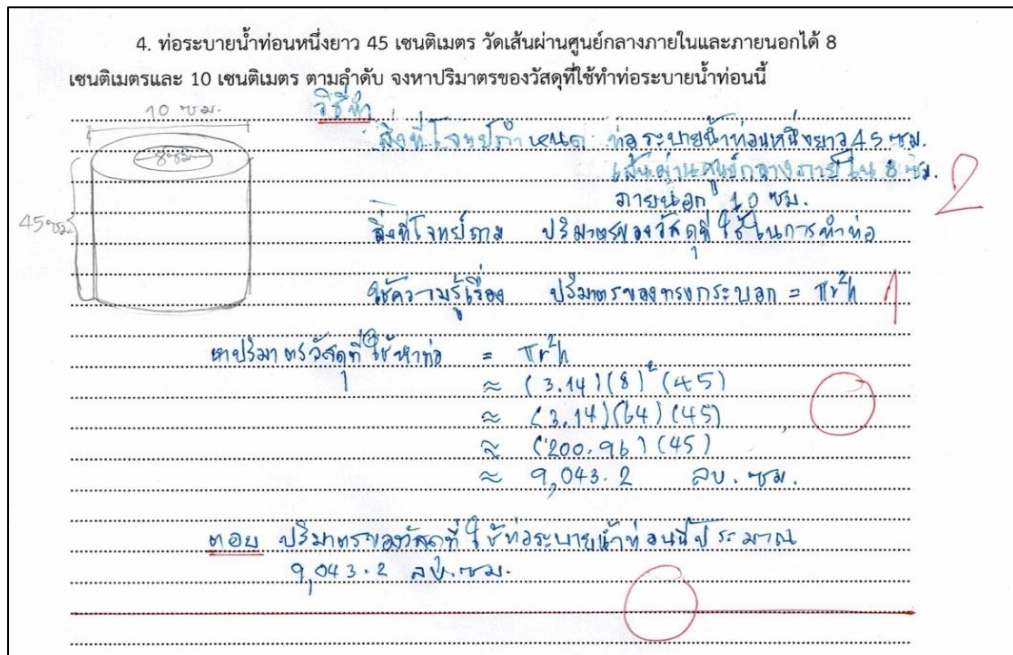 4. ท่อระบายน้ำท่อนหนึ่งยาว 45 เซนติเมตร วัดเส้นผ่านศูนย์กลางภายในและภายนอกได้ 8
เซนติเมตรและ 10 เซนติเมตร ตามลำดับ จงหาปริมาตรของวัสดุที่ใช้ทำท่อระบายน้ำท่อนนี้
10 ซม.
8ซม
45 ซม.
วิธีทำ
สิ่งที่โจทย์กำหนด ท่อระบายน้ำท่อนหนึ่งยาว 45 ซม.
เส้นผ่านศูนย์กลางภายใน 8 ซม.
ภายนอก 10 ซม.
2
สิ่งที่โจทย์ถาม ปริมาตรของวัสดุที่ใช้ในการทำท่อ
ใช้ความรู้เรื่อง ปริมาตรของทรงกระบอก = πr²h
1
หาปริมาตรวัสดุที่ใช้ทำท่อ = πr²h
≈ (3.14)(8)²(45)
≈ (3.14)(64)(45)
≈ (200.96)(45)
≈ 9,043.2 ลบ.ซม.
ตอบ ปริมาตรของวัสดุที่ใช้ท่อระบายน้ำท่อนนี้ประมาณ
9,043.2 ลบ.ซม.